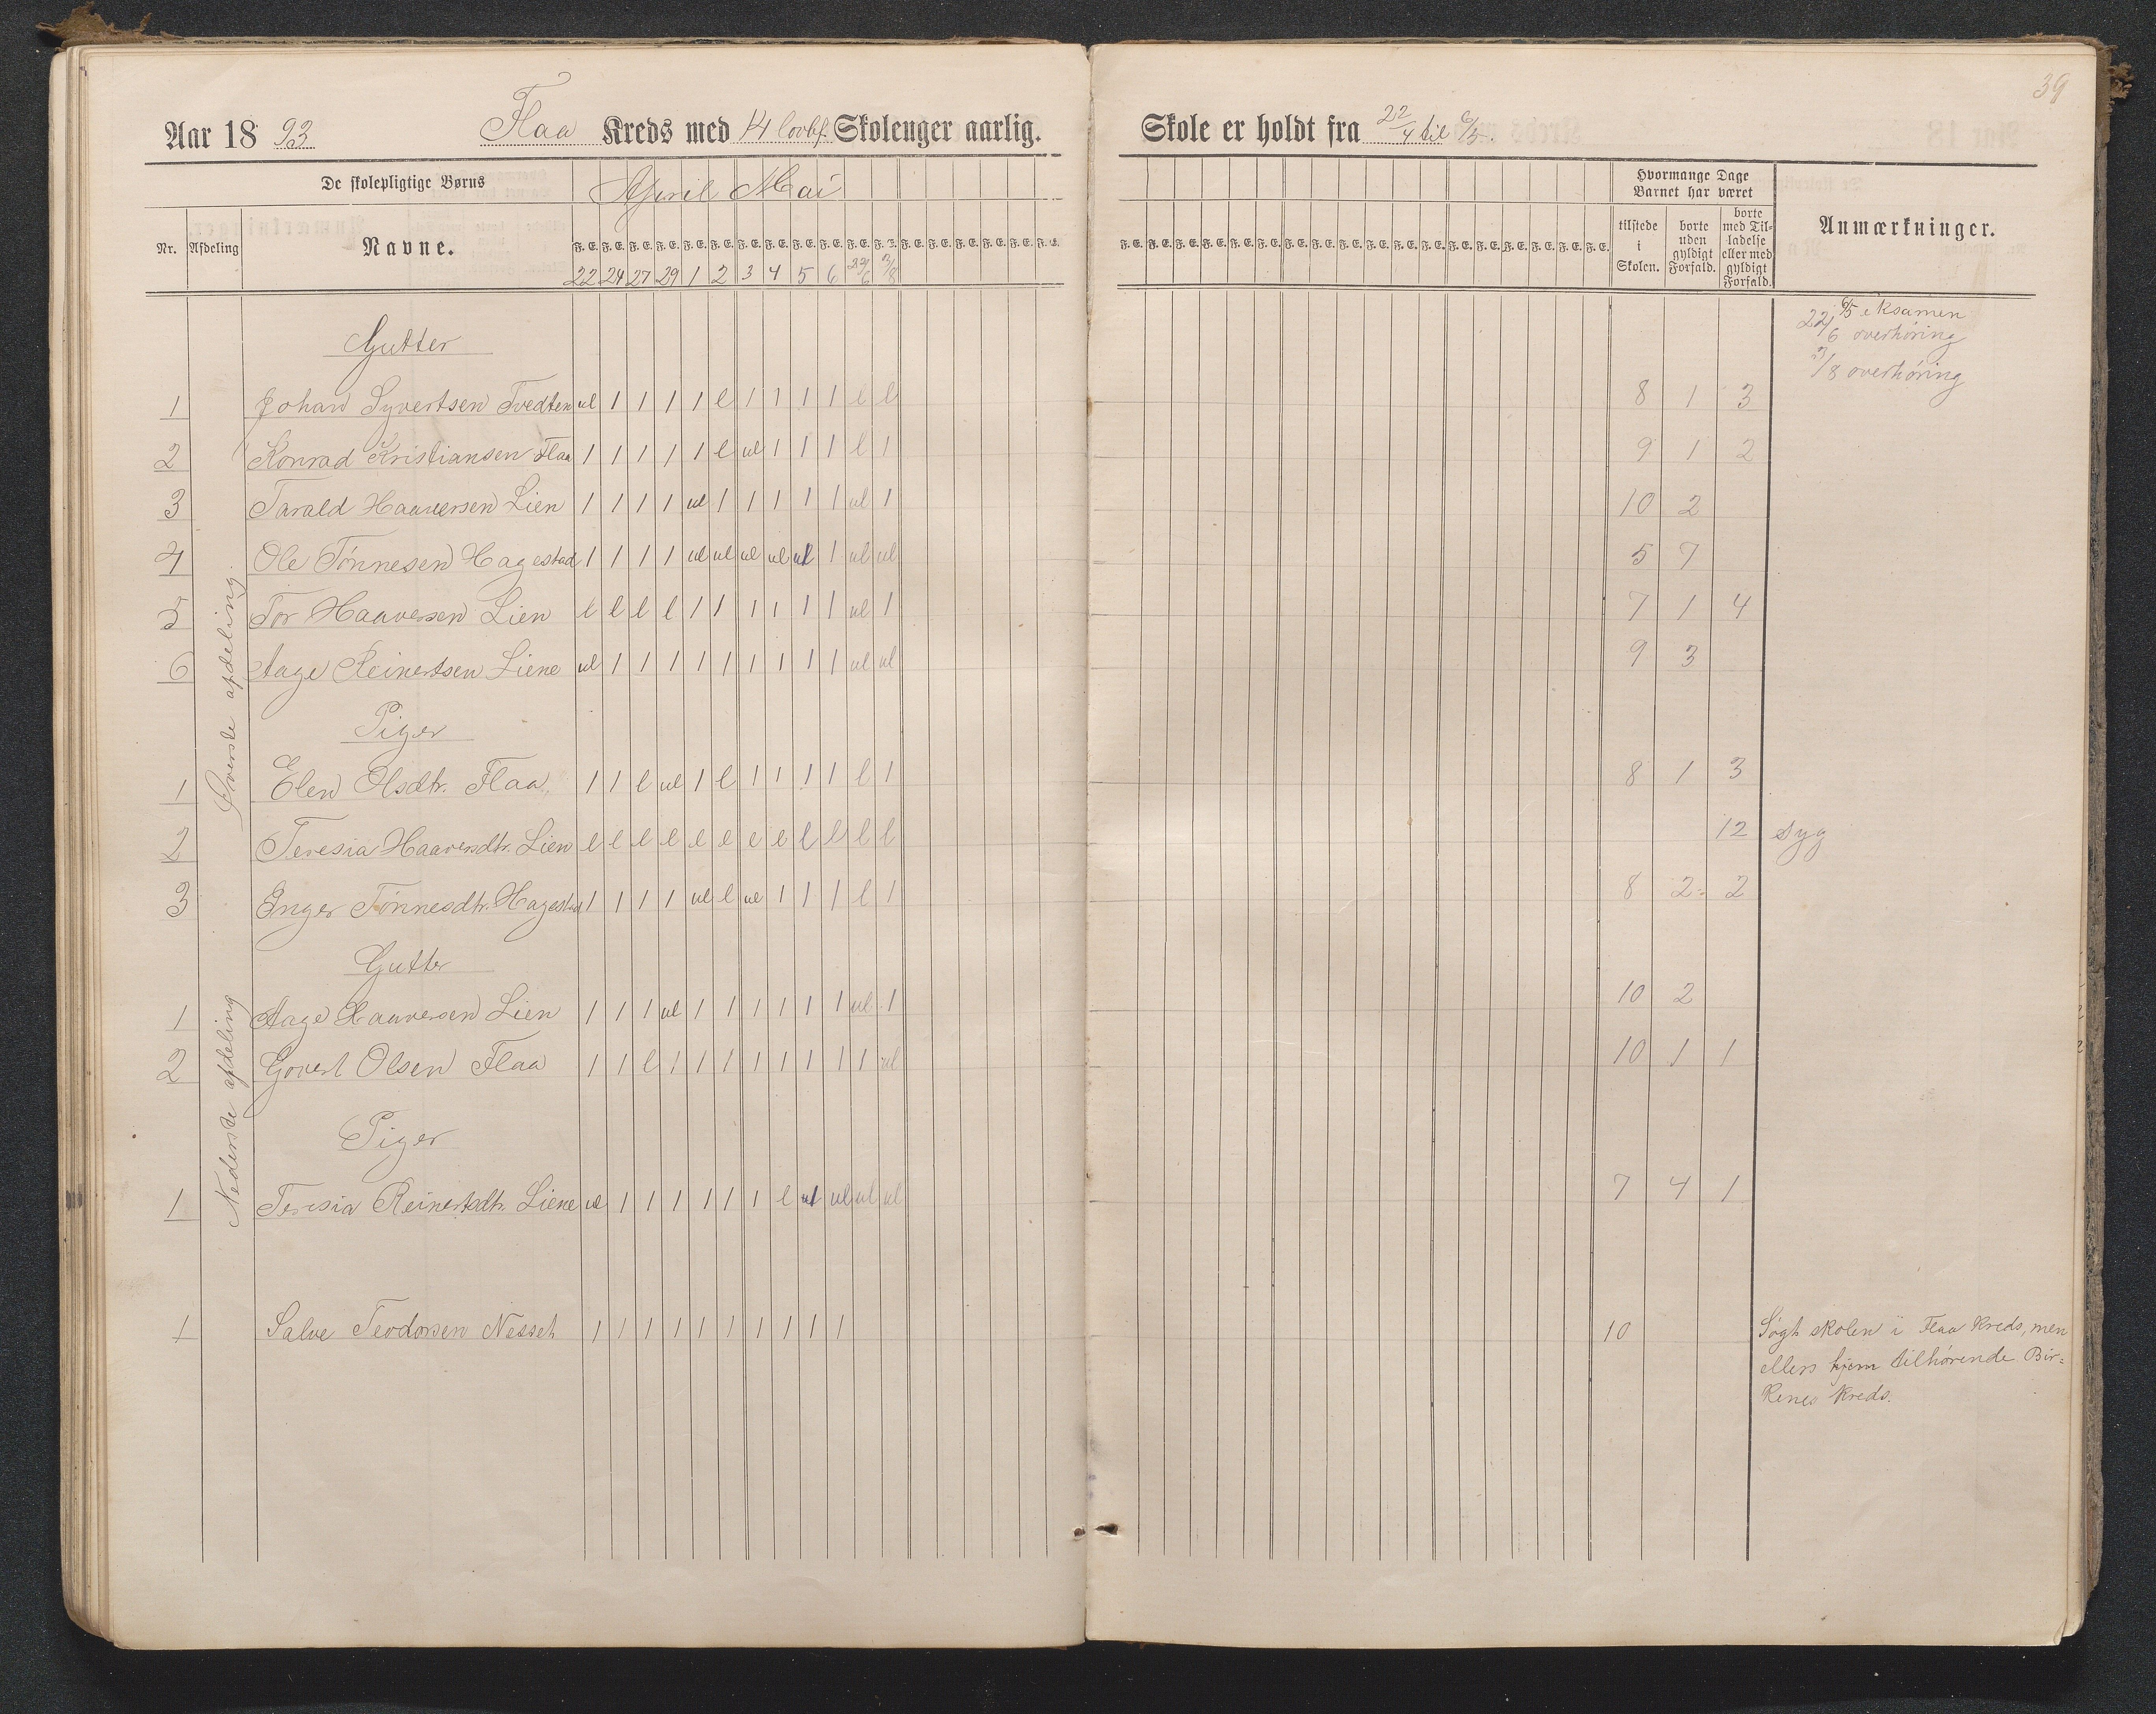 39
Aar 18 93 Flaa Kreds med 14 lovbf. Skoleuger aarlig. Skole er holdt fra 22/4 til 6/5.
De skolepligtige Børns April Mai Hvormange Dage Barnet har været
Nr. Afdeling Navne. F. E. F. E. F. E. F. E. F. E. F. E. F. E. F. E. F. E. F. E. F. E. tilstede i Skolen. borte uden gyldigt Forfald. borte med Tilladelse eller med gyldigt Forfald. Anmærkninger.
22 24 27 29 1 2 3 4 5 6 22/6 3/8
6/5 eksamen
22/6 overhøring
3/8 overhøring
Øverste afdeling.
Gutter
1 Johan Syvertsen Tvedten ul 1 1 1 1 l 1 1 1 1 l l 8 1 3
2 Konrad Kristiansen Flaa 1 1 1 1 1 l ul 1 1 1 l 1 9 1 2
3 Tarald Haaversen Lien 1 1 1 1 ul 1 1 1 1 1 ul 1 10 2
4 Ole Tønnesen Hagestad 1 1 1 1 ul ul ul ul ul 1 ul ul 5 7
5 Tor Haaversen Lien l l l l 1 1 1 1 1 1 ul 1 7 1 4
6 Aage Reinertsen Liene ul 1 1 1 1 1 1 1 1 1 ul ul 9 3
Piger
1 Elen Olsdtr. Flaa, 1 1 l ul 1 l 1 1 1 1 l 1 8 1 3
2 Teresia Haaversdtr. Lien l l l l l l l l l l l l 12 syg
3 Inger Tønnesdtr. Hagestad 1 1 1 1 ul l ul 1 1 1 l 1 8 2 2
Nederste afdeling
Gutter
1 Aage Haaversen Lien 1 1 1 ul 1 1 1 1 1 1 ul 1 10 2
2 Govert Olsen Flaa 1 1 l 1 1 1 1 1 1 1 1 ul 10 1 1
Piger
1 Teresia Reinertsdtr. Liene ul 1 1 1 1 1 1 l ul ul ul ul 7 4 1
1 Salve Teodorsen Nesset 1 1 1 1 1 1 1 1 1 1 10 Søgt skolen i Flaa Kreds, men
ellers hjem tilhørende Bir-
kenes Kreds.